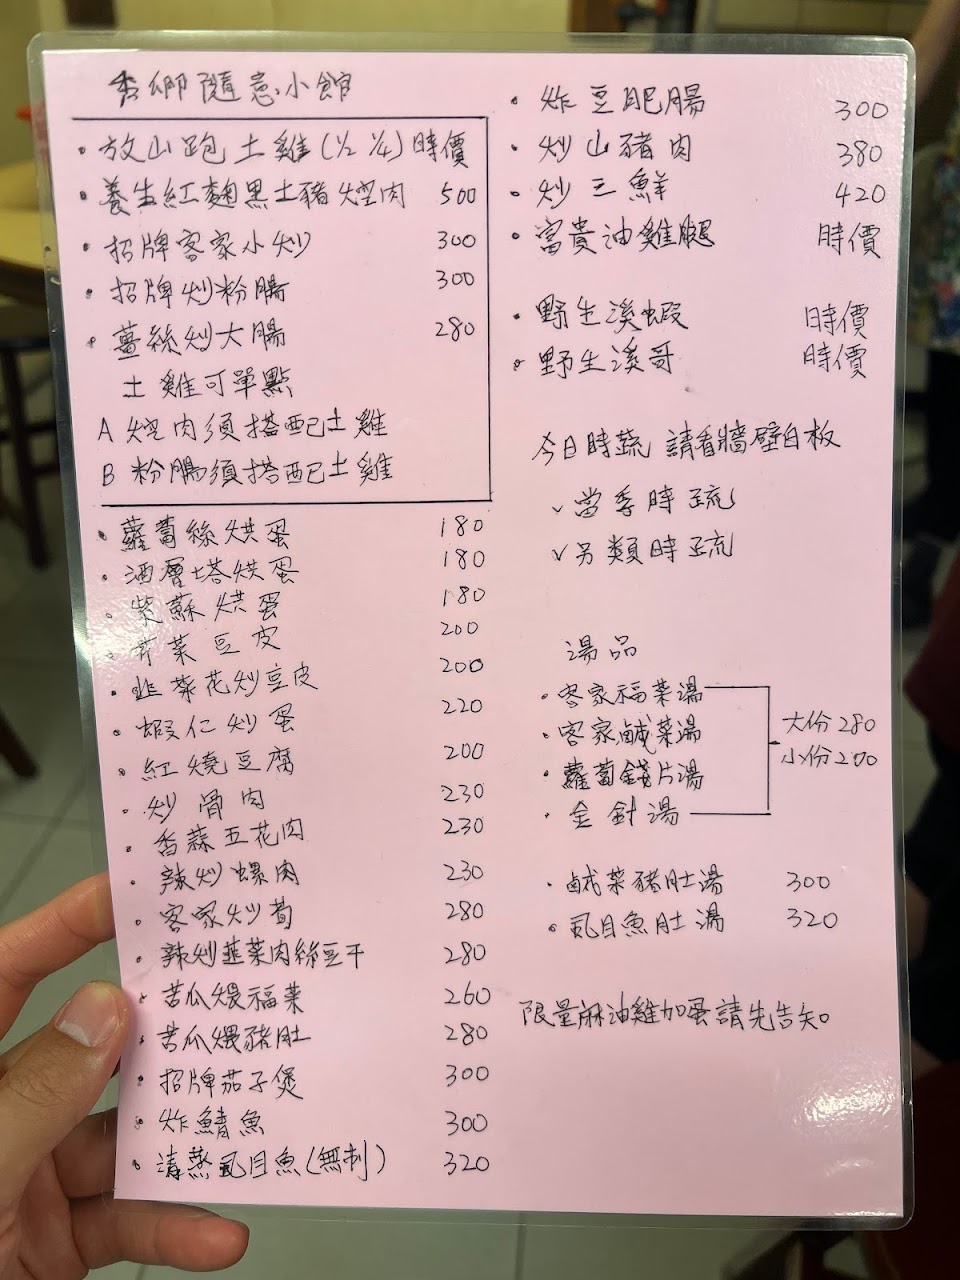 香鄉隨意小館
• 放山跑土雞(1/2 1/4)時價
• 養生紅麴黑土豬焢肉 500
• 招牌客家小炒 300
• 招牌炒粉腸 300
• 薑絲炒大腸 280
土雞可單點
A 焢肉須搭配土雞
B 粉腸須搭配土雞
• 蘿蔔絲烘蛋 180
• 酒層塔烘蛋 180
• 紫蘇烘蛋 180
• 芥菜豆皮 200
• 韭菜花炒豆皮 200
• 蝦仁炒蛋 220
• 紅燒豆腐 200
• 炒骨肉 230
• 香蒜五花肉 230
• 辣炒螺肉 230
• 客家炒筍 280
• 辣炒韭菜肉絲豆干 280
• 苦瓜煨福菜 260
• 苦瓜煨豬肚 280
• 招牌茄子煲 300
• 炸鯖魚 300
• 清蒸虱目魚(無刺) 320
• 炸豆肥腸 300
• 炒山豬肉 380
• 炒三鮮 420
• 富貴油雞腿 時價
• 野生溪蝦 時價
• 野生溪哥 時價
今日時蔬 請看牆壁白板
✓當季時疏
✓另類時疏
湯品
• 客家福菜湯
• 客家鹹菜湯
• 蘿蔔錢片湯
• 金針湯
大份280
小份200
• 鹹菜豬肚湯 300
• 虱目魚肚湯 320
限量麻油雞加蛋請先告知